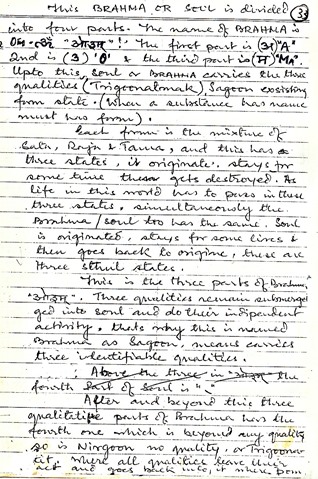 This BRAHMA OR SOUL is divided (33)
into four parts. The name of BRAHMA is
"ओउम्"! The first part is (अ) "A"
2nd is (उ) 'O' & the third part is (म) "Ma".
Upto this, Soul or BRAHMA carries the three
qualities (Trigoonatmak), Sagoon existing
form state. (When a substance has name
must has form).
Each form is the mixture of
Satva, Rajs & Tama, and this has
three states, it originate, stays for
some time then gets destroyed. As
life in this world has to pass in these
three states, simultaneously the
Brahma/Soul too has the same. Soul
is originated, stays for some lives &
then goes back to origine, these are
three sthul states.
This is the three parts of Brahma,
"ओउम्". Three qualities remain submerged
ged into Soul and do their indipendent
activity, thats why this is named
Brahma as Sagoon, means carries
three identifiable qualities.
: Above the three in "ओउम्" the
fourth part of Soul is "."
After and beyond this three
qualitative parts of Brahma has the
fourth one which is beyond any quality
so is Nirgoon no quality, or Trigoona
tit, where all qualities leave their
act and goes back into, it where from